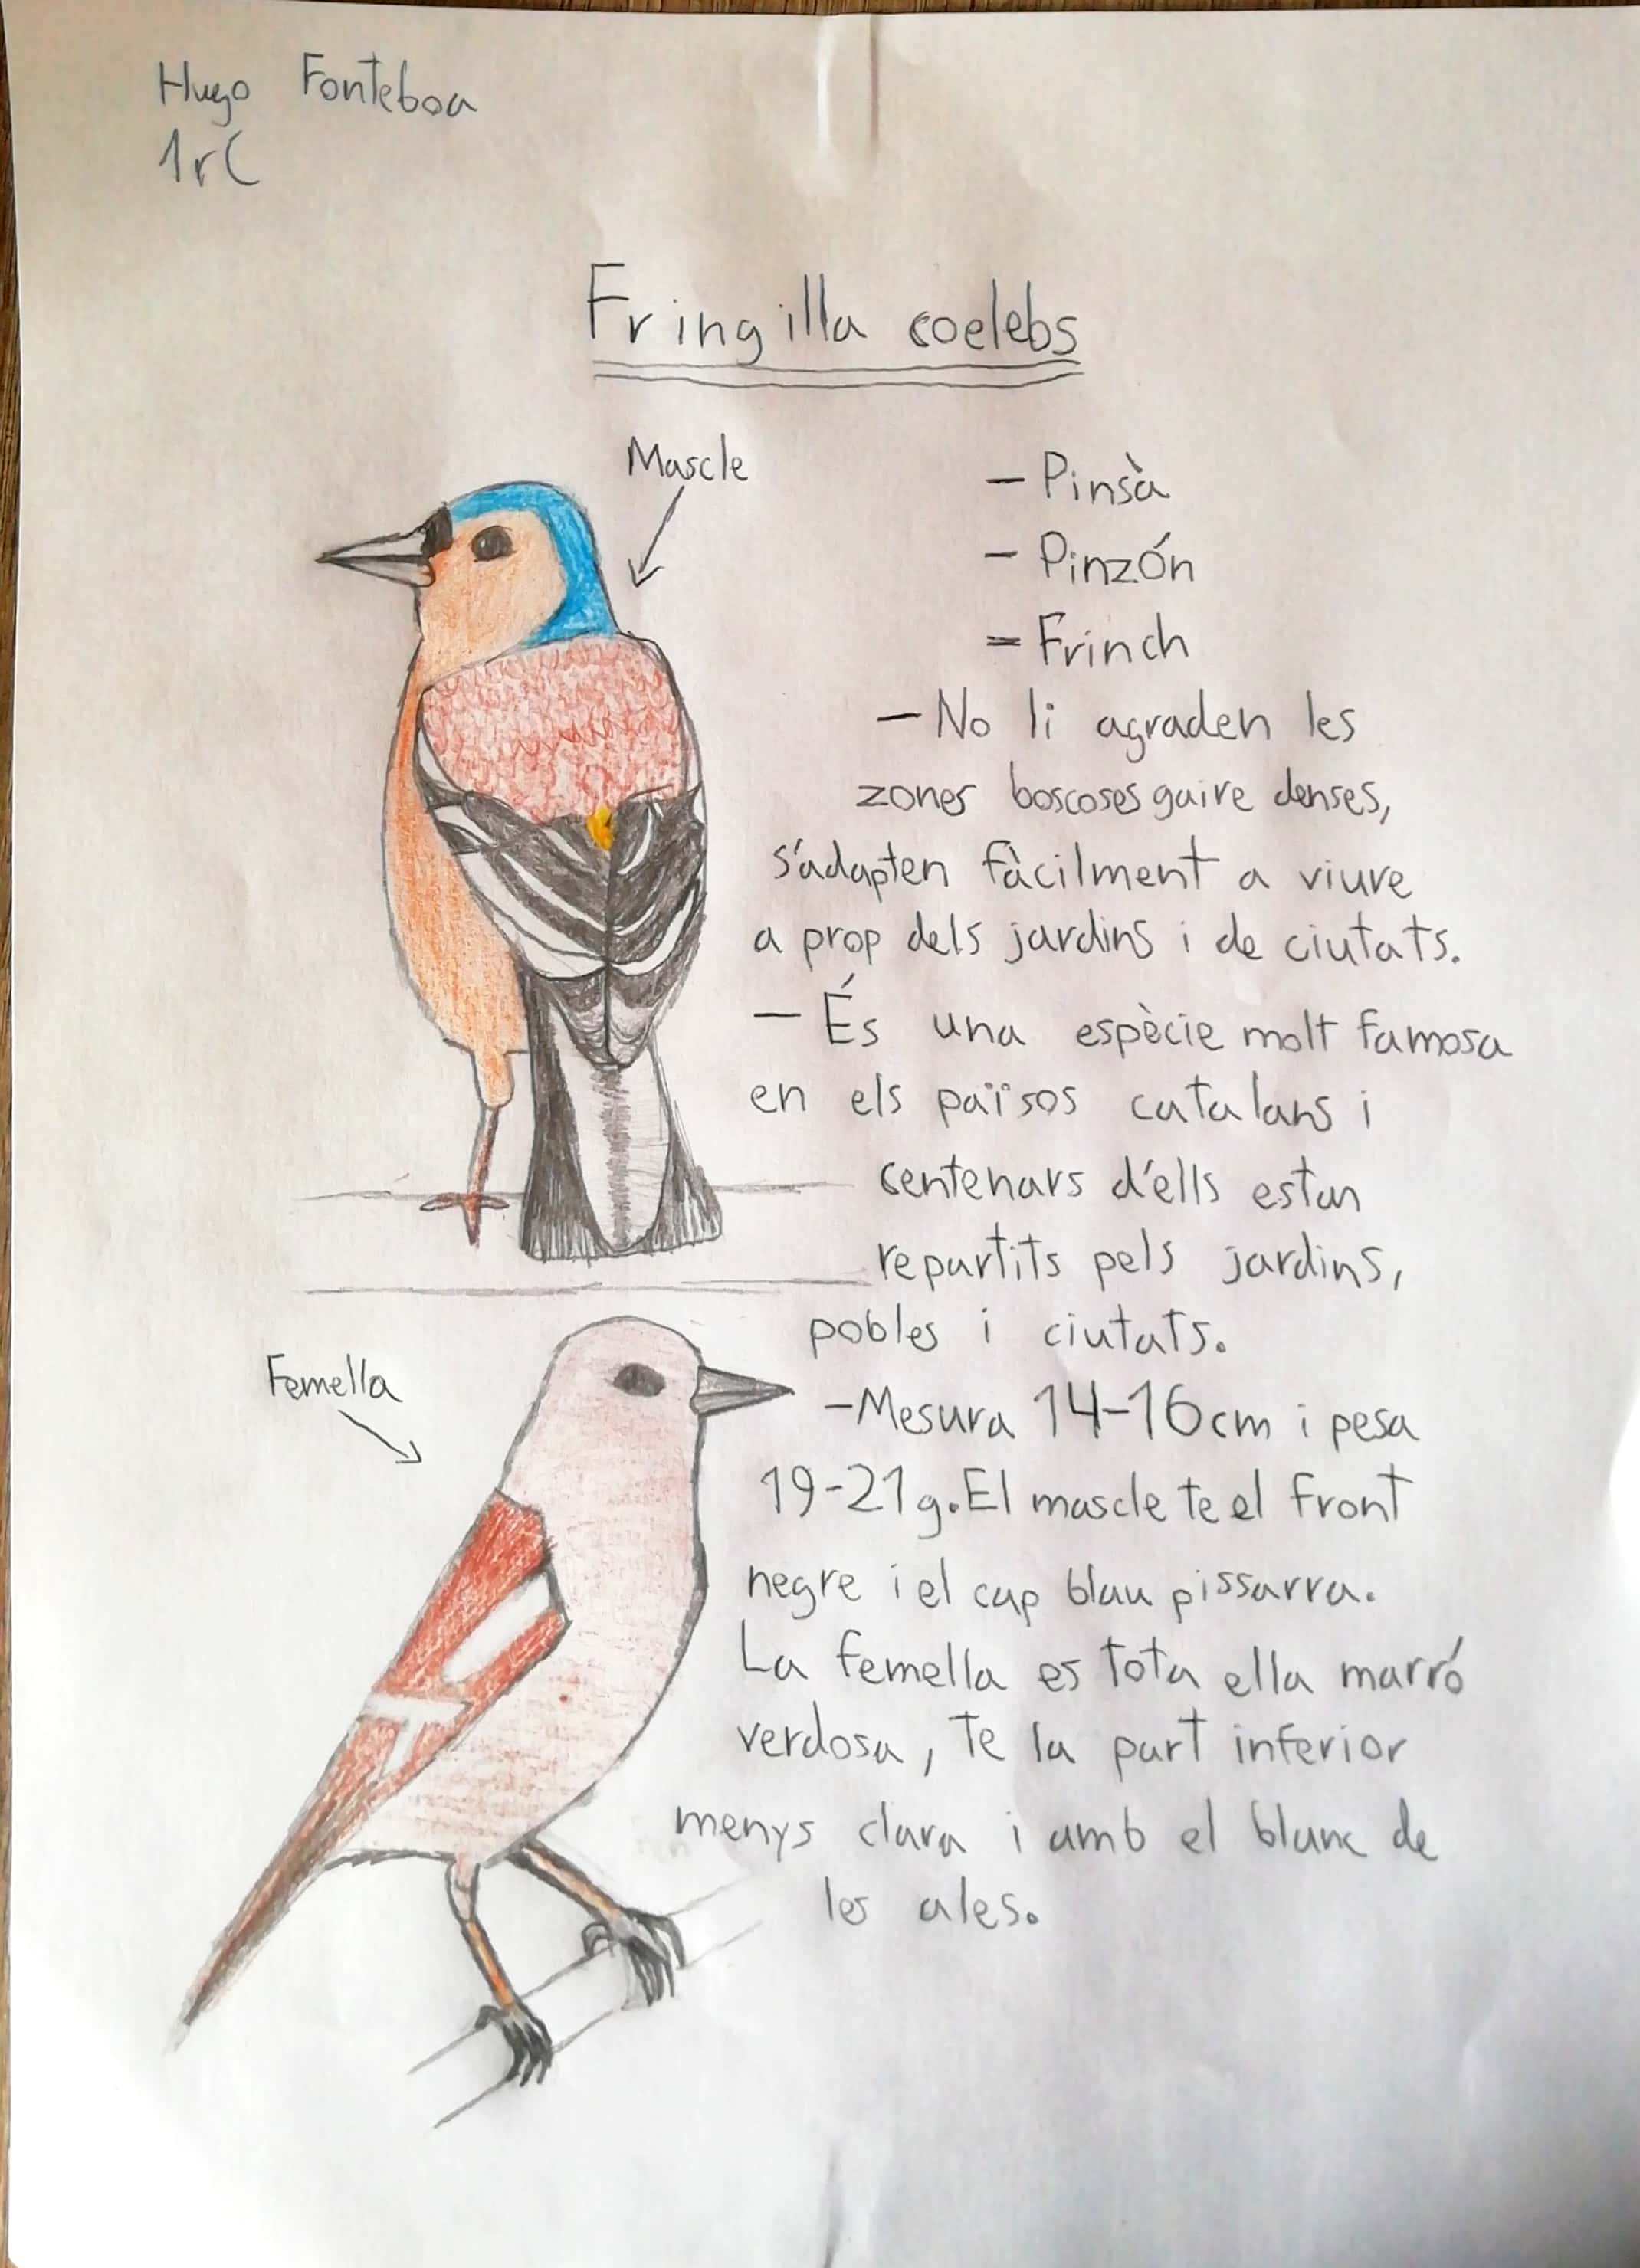 Hugo Fonteboa
1rC
Fringilla coelebs
Mascle
- Pinsà
- Pinzón
= Frinch
- No li agraden les
zones boscoses gaire denses,
s'adapten fàcilment a viure
a prop dels jardins i de ciutats.
- És una espècie molt famosa
en els països catalans i
centenars d'ells estan
repartits pels jardins,
pobles i ciutats.
Femella
-Mesura 14-16cm i pesa
19-21g. El mascle te el front
negre i el cap blau pissarra.
La femella es tota ella marró
verdosa, te la part inferior
menys clara i amb el blanc de
les ales.